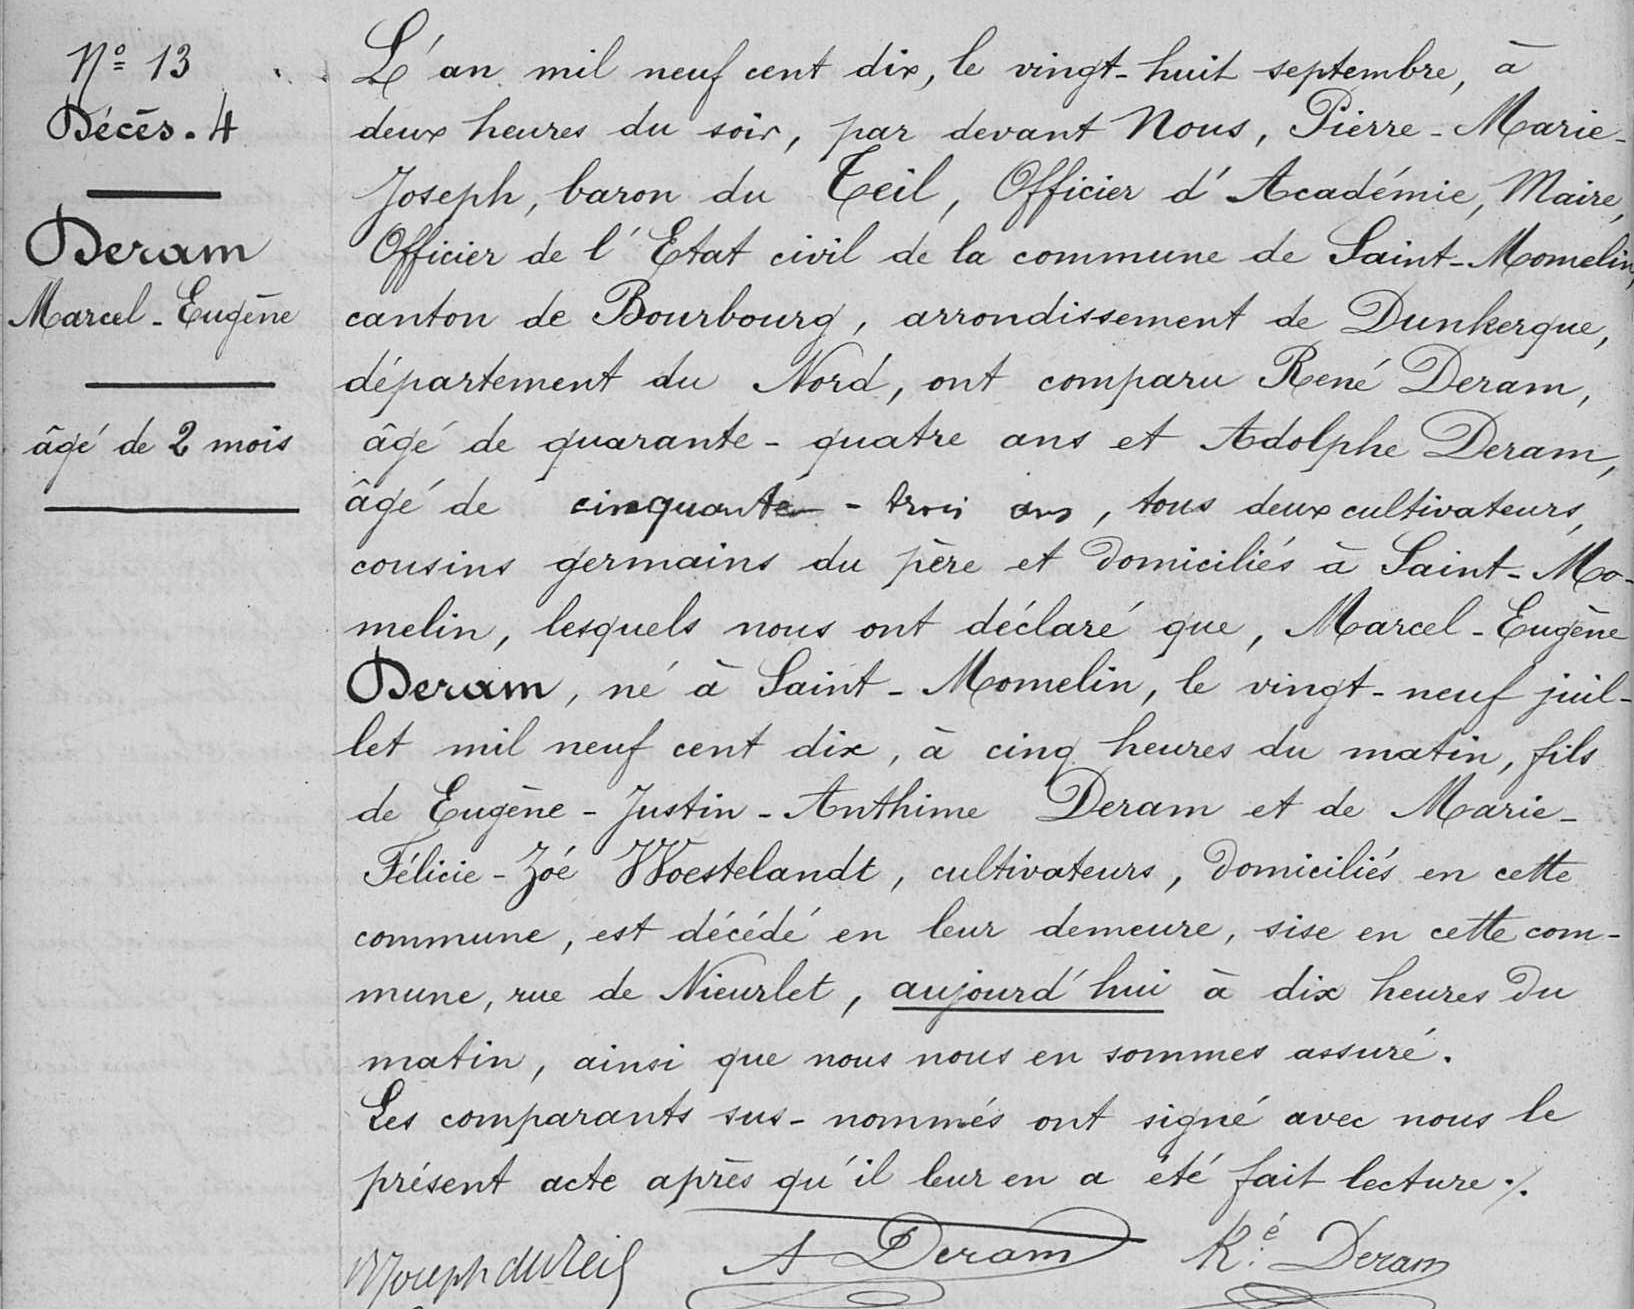 N° 13
Décès. 4
Deram
Marcel - Eugène
âgé de 2 mois
L'an mil neuf cent dix, le vingt-huit septembre, à
deux heures du soir, par devant Nous, Pierre - Marie -
Joseph, baron du Teil, Officier d'Académie, Maire,
Officier de l'Etat civil de la commune de Saint-Momelin,
canton de Bourbourg, arrondissement de Dunkerque,
département du Nord, ont comparu René Deram,
âgé de quarante - quatre ans et Adolphe Deram,
âgé de cinquante - trois ans, tous deux cultivateurs,
cousins germains du père et domiciliés à Saint - Mo-
melin, lesquels nous ont déclaré que, Marcel - Eugène
Deram, né à Saint - Momelin, le vingt - neuf juil-
let mil neuf cent dix, à cinq heures du matin, fils
de Eugène - Justin - Anthime Deram et de Marie -
Félicie - Zoé Woestelandt, cultivateurs, domiciliés en cette
commune, est décédé en leur demeure, sise en cette com-
mune, rue de Nieurlet, aujourd'hui à dix heures du
matin, ainsi que nous nous en sommes assuré.
Les comparants sus - nommés ont signé avec nous le
présent acte après qu'il leur en a été fait lecture ./.
Joseph du Teil A Deram Ré. Deram